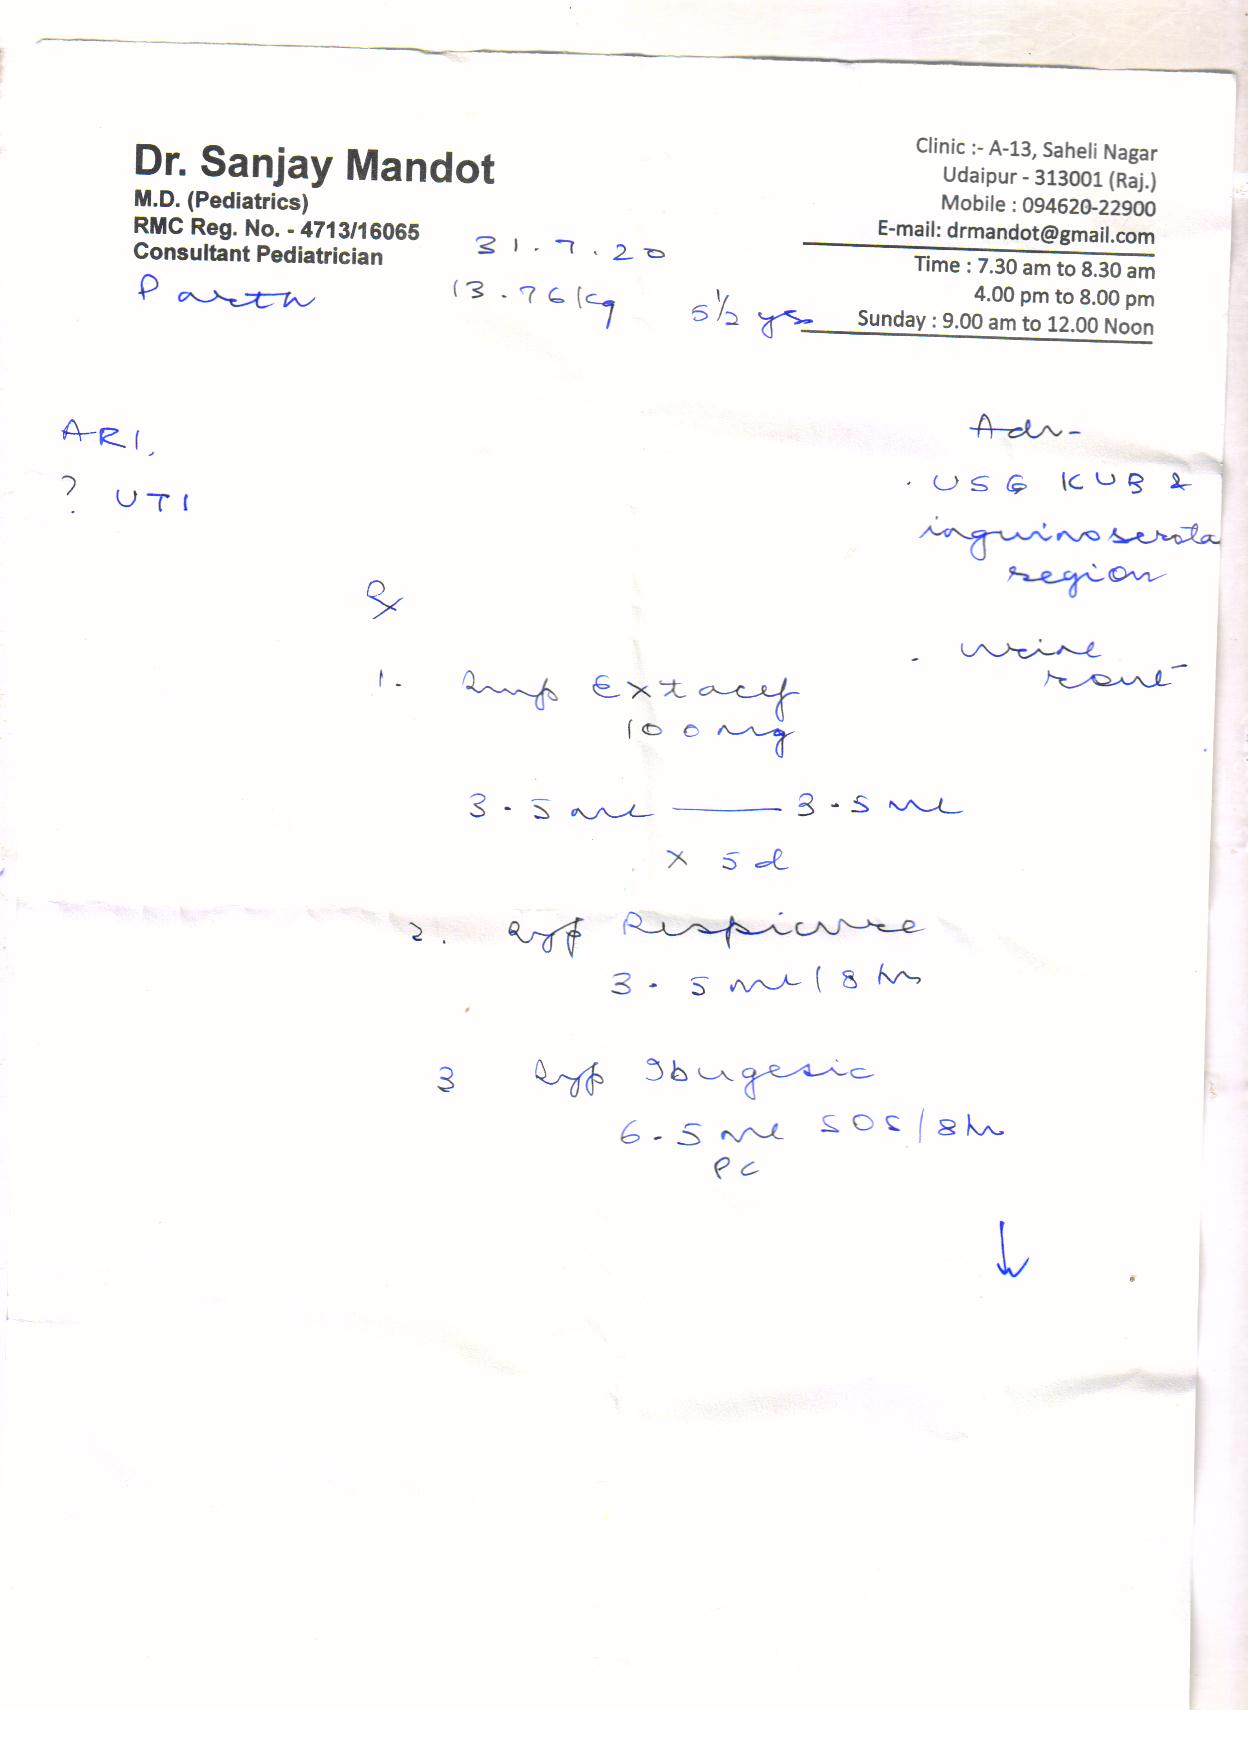 Dr. Sanjay Mandot
M.D. (Pediatrics)
RMC Reg. No. - 4713/16065
Consultant Pediatrician
Clinic :- A-13, Saheli Nagar
Udaipur - 313001 (Raj.)
Mobile : 094620-22900
E-mail: drmandot@gmail.com
Time : 7.30 am to 8.30 am
4.00 pm to 8.00 pm
Sunday : 9.00 am to 12.00 Noon
31.7.20
Parth 13.76 kg 5½ ys
ARI,
? UTI
Adv-
. USG KUB &
inguinoscrotal
region
. Urine
rout
Rx
1. Syp Extacef
100 mg
3.5 ml — 3.5 ml
x 5d
2. Syp Respicure
3.5 ml / 8 hr
3 Syp Ibugesic
6.5 ml SOS / 8 hr
PC
↓